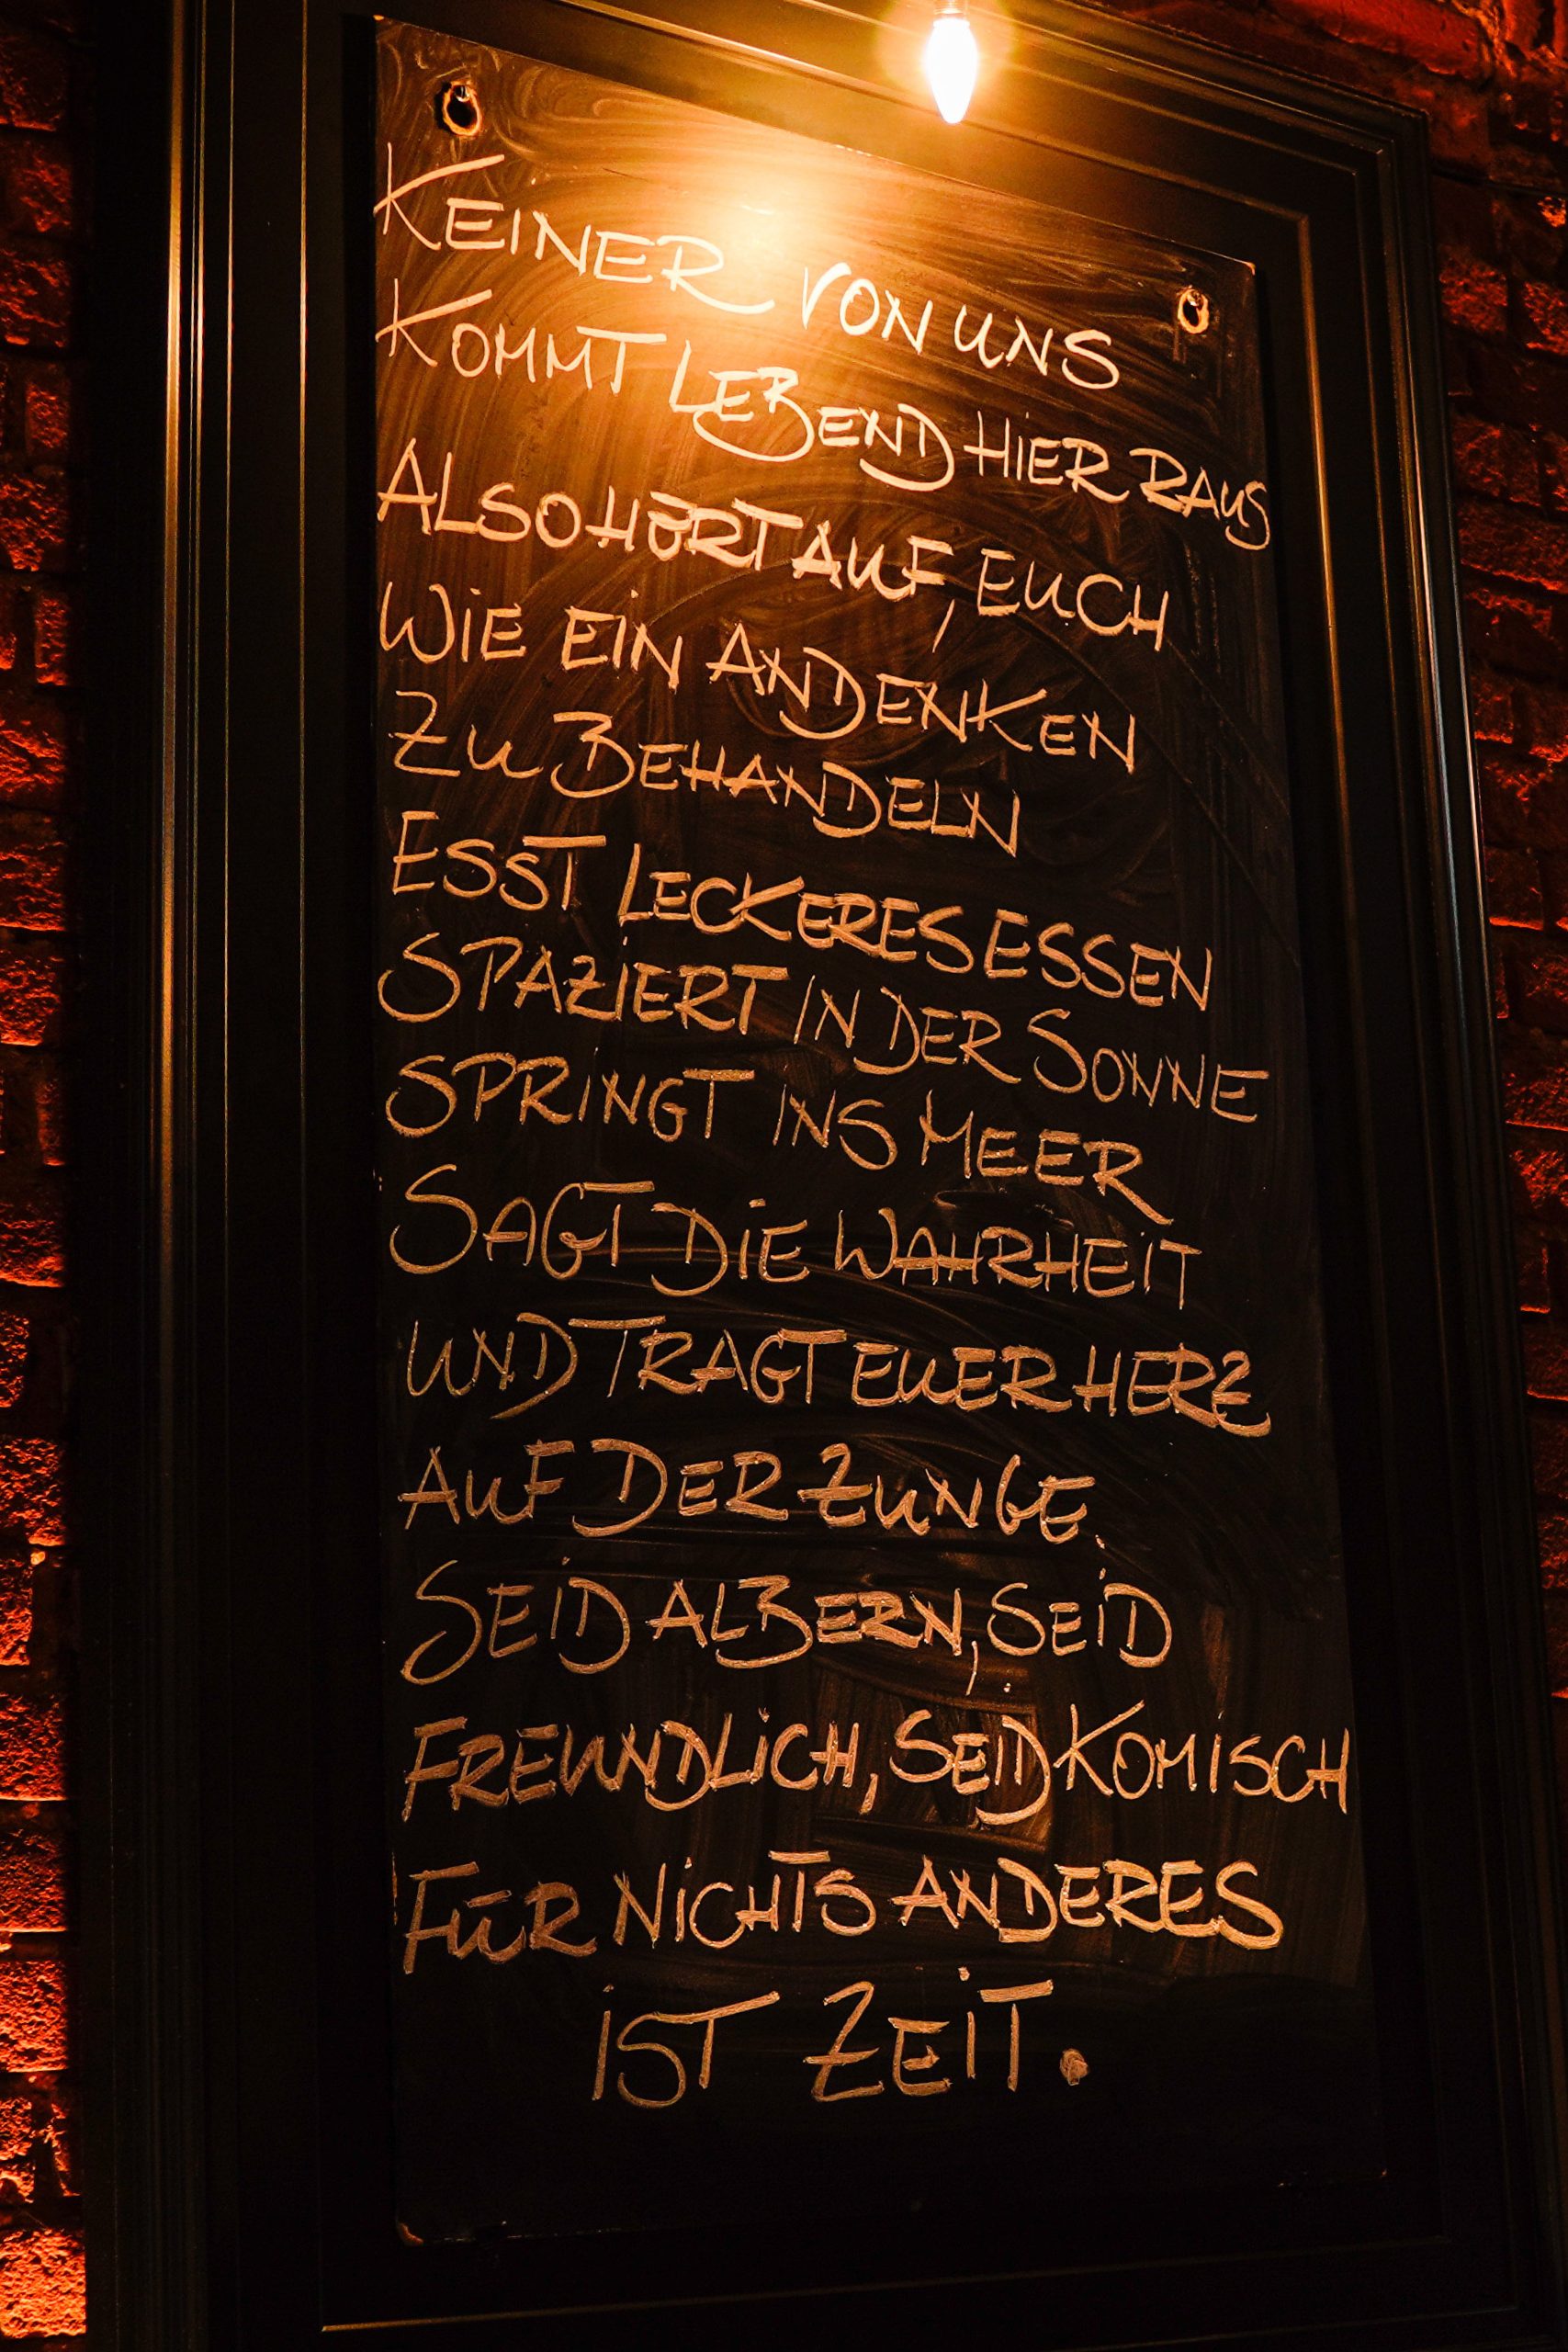 KEINER VON UNS
KOMMT LEBEND HIER RAUS
ALSO HÖRT AUF, EUCH
WIE EIN ANDENKEN
ZU BEHANDELN
ESST LECKERES ESSEN
SPAZIERT IN DER SONNE
SPRINGT INS MEER
SAGT DIE WAHRHEIT
UND TRAGT EUER HERZ
AUF DER ZUNGE.
SEID ALBERN, SEID
FREUNDLICH, SEID KOMISCH
FÜR NICHTS ANDERES
IST ZEIT.